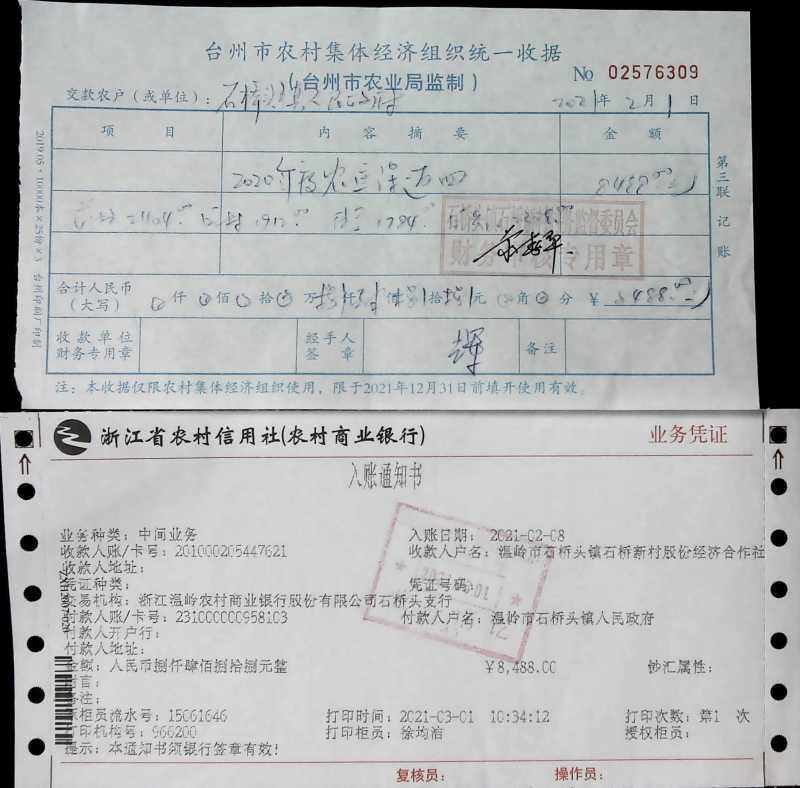 台州市农村集体经济组织统一收据
(台州市农业局监制)
No 02576309
交款农户（或单位）：石桥头镇人民政府 2021年2月1日
项目 内容摘要 金额
2020年度农应误 8488.00
2404.00 1912.00 1784.00
监督委员会
财务 专用章
合计人民币
(大写) 仟 佰 拾 万 仟 佰 拾 元 角 分 ¥ 8488.00
收款单位
财务专用章
经手人
签章
备注
注：本收据仅限农村集体经济组织使用，限于2021年12月31日前填开使用有效。
第三联 记账
2019.05·10000本×25份×3 台州印刷厂印制
浙江省农村信用社(农村商业银行) 业务凭证
入账通知书
业务种类：中间业务 入账日期：2021-02-08
收款人账/卡号：201000205447621 收款人户名：温岭市石桥头镇石桥新村股份经济合作社
收款人地址：
凭证种类： 凭证号码：
交易机构：浙江温岭农村商业银行股份有限公司石桥头支行
付款人账/卡号：231000000958103 付款人户名：温岭市石桥头镇人民政府
付款人开户行：
付款人地址：
金额：人民币捌仟肆佰捌拾捌元整 ¥8,488.00 钞汇属性：
附言：
备注：
原柜员流水号：15061646 打印时间：2021-03-01 10:34:12 打印次数：第1 次
打印机构号：966200 打印柜员：徐均洁 授权柜员：
提示：本通知书须银行签章有效！
复核员： 操作员：